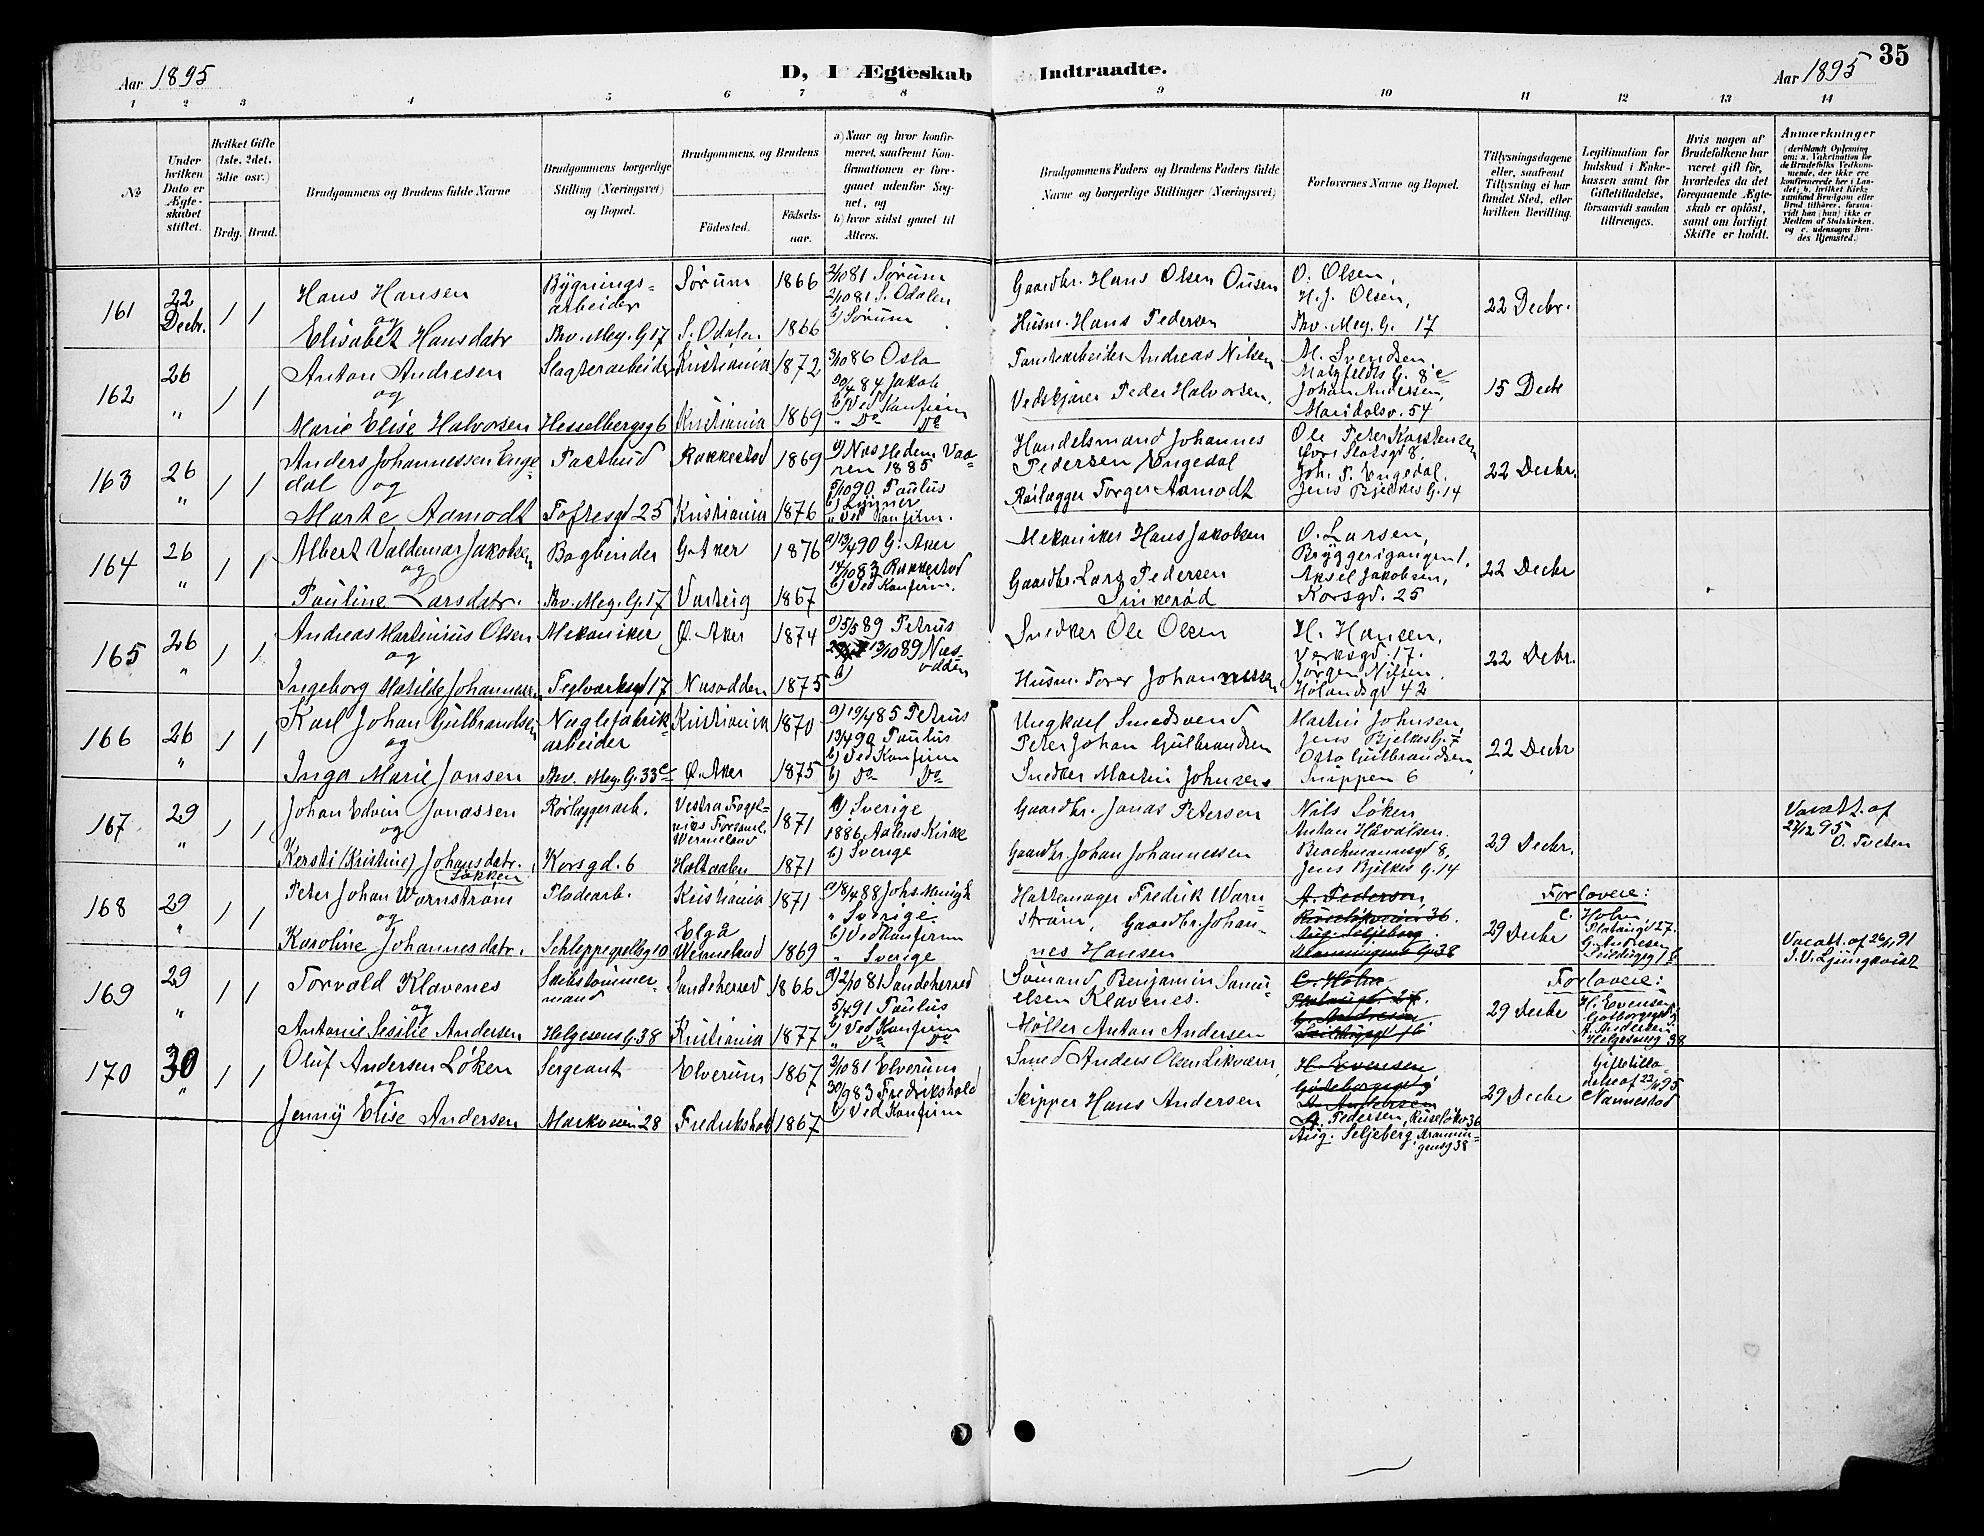 Aar 1895
D, I Ægteskab Indtraadte.
Aar 1895 35
1 2 3 4 5 6 7 8 9 10 11 12 13 14
No
Under hvilken Dato er Ægteskabet stiftet.
Hvilket Gifte (1ste, 2det, 3die osv.)
Brdg. Brud.
Brudgommens og Brudens fulde Navne
Brudgommens borgerlige Stilling (Næringsvei) og Bopæl.
Brudgommens og Brudens
Fødested.
Fødselsaar.
a) Naar og hvor konfirmeret, saafremt Konfirmationen er foregaaet udenfor Sognet, og
b) hvor sidst gaaet til Alters.
Brudgommens Faders og Brudens Faders fulde Navne og borgerlige Stillinger (Næringsvei)
Forlovernes Navne og Bopæl.
Tillysningsdagene eller, saafremt Tillysning ei har fundet Sted, efter hvilken Bevilling.
Legitimation for Indskud i Enkekassen samt for Giftetilladelse, forsaavidt saadan tiltrænges.
Hvis nogen af Brudefolkene har været gift før, hvorledes da det foregaaende Ægteskab er opløst, samt om lovligt Skifte er holdt.
Anmærkninger
161 22 Decbr. 1 1
Hans Hansen
og
Elisabet Hansdatr
Bygnings-
arbeider
Thv. Mey. G 17
Sørum 1866
S. Odalen 1866
2/10 81 Sørum
2/10 81 S. Odalen
b) Sørum
Gaardbr. Hans Olsen
Husm. Hans Pedersen
O. Olsen,
H. J. Olsen,
Thv. Mey. G. 17
22 Decbr.
162 26 " 1 1
Anton Andresen
og
Marie Elise Halvorsen
Slagterarbeider
Hesselbergsg 6
Kristiania 1872
Kristiania 1869
86 Oslo
84 Jakob
b) Ved Konfirm
" Do Do
Andreas Nilsen
Vedskjærer Peder Halvorsen.
M. Svendsen
Malzfeldts G. 8c
Johan Andersen,
Maridalsv. 54
15 Decb
163 26 " 1 1
Anders Johannessen Enge-
dal og
Marte Aamodt
Postbud
Toftesgd 25
Rakkestad 1869
Kristiania 1876
1885
5/10 90 Paulus
" Ved Konfirm.
Handelsmand Johannes
Pedersen Engedal
Rørlægger Torger Aamodt
Ole Peter Karstensen
Øvre Slotsgd 8.
Joh. P. Engedal.
Jens Bjelkes G. 14
22 Decbr.
164 26 " 1 1
Albert Valdemar Jakobsen
og
Pauline Larsdatr.
Bogbinder
Thv. Mey. G. 17
G. Aker 1876
Varteig 1867
a) 13/4 90 G. Aker
14/10 83 Rakkestad
b) Ved Konfirm.
Mekaniker Hans Jakobsen
Gaardbr. Lars Pedersen
Sinkerød
O. Larsen,
Bryggerigangen 1.
Aksel Jakobsen,
Korsgd. 25
22 Decbr
165 26 " 1 1
Andreas Martinius Olsen
og
Ingeborg Matilde Johannessen
Mekaniker
Teglverksgd 17
Ø. Aker 1874
Nesodden 1875
a) 5/5 89 Petrus
13/10 89 Nes-
odden
b)
Snedker Ole Olsen
Husm. Tover Johannessen
H. Hansen,
Verksgd. 17.
Jørgen Nilsen.
Hølandsgd 42
22 Debr.
166 26 " 1 1
Karl Johan Gulbrandsen
og
Inga Marie Jonsen
Naglefabrik-
arbeider
Thv. Mey. G. 33c
Kristiania 1870
Ø. Aker 1875
a) 19/4 85 Petrus
13/4 90 Paulus
b) Ved Konfirm
b) Do Do
Ungkarl Smedsvend
Peter Johan Gulbrandsen
Snedker Martin Johnsen
Martin Johnsen,
Jens Bjelkes G. 7
Osto Gulbrandsen,
Snippen 6
22 Decbr
167 29 " 1 1
Johan Edvin Jonassen
og
Kersti (Kristine) Johansdatr.
Løkken
Rørlæggerarb.
Korsgd. 6
Vestra
Wermeland 1871
Holtaalen 1871
a) Sverige
1886 Aalens Kirke
b) Sverige
Gaardbr. Jonas Petersen
Gaardbr Johan Johannessen
Nils Løken
Anton
Brochmannsgd 8,
Jens Bjelkes G. 14
29 Decbr.
Vacatt. af
27/12 95
O. Tveten
168 29 " 1 1
Peter Johan Warnstrøm
og
Karoline Johannesdatr.
Flødearb.
Schleppegrellsg 10
Kristiania 1871
Elgå
Wermeland 1869
a) 8/4 88 Johs. Menigh
" Sverige.
b) Ved Konfirm
" Sverige
Hattemager Fredrik Warn-
strøm, Gaardbr. Johan-
nes Hansen
A. Pedersen,
Ruseløkveien 36.
Aug. Seljeberg
Dronningens G 38
29 Decbr
Forlovere:
C. Holm
Platousgd 27.
G. Andresen
Vacatt. af 26/4 91
J. V. Ljungqvist
169 29 " 1 1
Torvald Klavenes
og
Antonie Sesilie Andersen
Skibstømmer-
mand
Helgesens G. 38
Sandeherred 1866
Kristiania 1877
a) 2/10 81 Sandeherred
5/4 91 Paulus
b) Ved Konfirm
" Do Do
Sømand Benjamin Samu-
elsen Klavenes.
Møller Anton Andersen
C. Holm
Platousgd. 27.
G. Andresen
29 Decbr
Forlovere:
H. Evensen
A. Andersen
Helgesensg 38
170 30 " 1 1
Oluf Andersen Løken
og
Jenny Elise Andersen
Sergeant
Markveien 28
Elverum 1867
Fredrikshald 1867
2/10 81 Elverum
30/9 83 Fredrikshald
b) Ved Konfirm
Smed Anders Olsen
Skipper Hans Andersen
H. Evensen
Gøteborgsgd 9
A. Andersen
A. Pedersen, Ruseløkv 36
Aug. Seljeberg, Dronnin-
gensg 38
29 Decbr
Giftetilla-
delse af 22/11 95
Nannestad